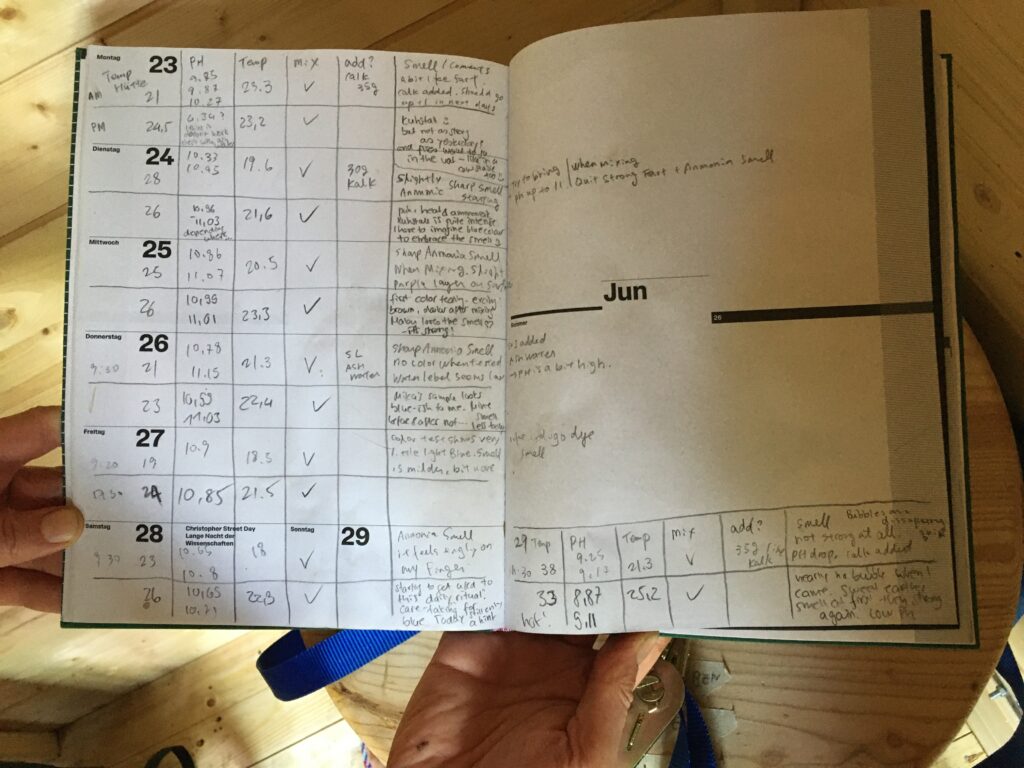 Montag 23 PH Temp Mix add? Smell / Comments
Temp Hütte
AM 21
9.85
9.87
10.27
23.3 ✓
Kalk
35g
a bit like fart.
kalk added. Should go
up to 11 in next days
PM 24,5
6.34?
23,2 ✓
Kuhstall
but not as strong
as yesterday!
in the vat
Dienstag 24
28
10.33
10.45
19.6 ✓
30g
Kalk
Slightly sharp smell
Ammonic starting
26
10.96
-11,03
depending
where...
21,6 ✓
Kuhstall is quite intense
I have to imagine blue colour
to embrace the smell
Mittwoch 25
25
10.86
11.07
20.5 ✓
Sharp Ammonia Smell
When Mixing. Slight
purple layer on surface
26
10,99
11,01
23,3 ✓
first color testing - exciting
brown, darker after
loves the smell
Donnerstag 26
9:30 21
10,78
11.15
21.3 ✓
5L
ASH
Water
Sharp Ammonia Smell
no color when tested
Water label seems low
23
10,53
11,03
22,4 ✓
Mika's sample looks
blue-ish to me. Mine
before & after not... smell
less
Freitag 27
9:20 19
10.9
18.5 ✓
Color test shows very
little light Blue. Smell
is milder, but more
17:30 24
10,85 21.5 ✓
Samstag 28 Christopher Street Day
Lange Nacht der
Wissenschaften
Sonntag 29
9:30 23
10.65
10.8
18 ✓
Ammonia Smell
it feels tingly on
my Finger
26
10,65
10.21
22,3 ✓
starting to get used to
this daily ritual!
care-taking for
blue
try to bring
ph up to 11
When mixing
Quit Strong Fart + Ammonia Smell
Jun
Sommer
26
added
Ash water
PH is a bit high.
indigo dye
smell
29 Temp PH Temp Mix add? Smell Bubbles are
disappearing
11:30 38
9.25
9.17
21.3 ✓
35g
Kalk
not strong at all
PH drop, kalk added
33
hot!
8,87
9,11
25,2 ✓
nearly no bubble when I
came,
smell at first then strong
again. Low PH